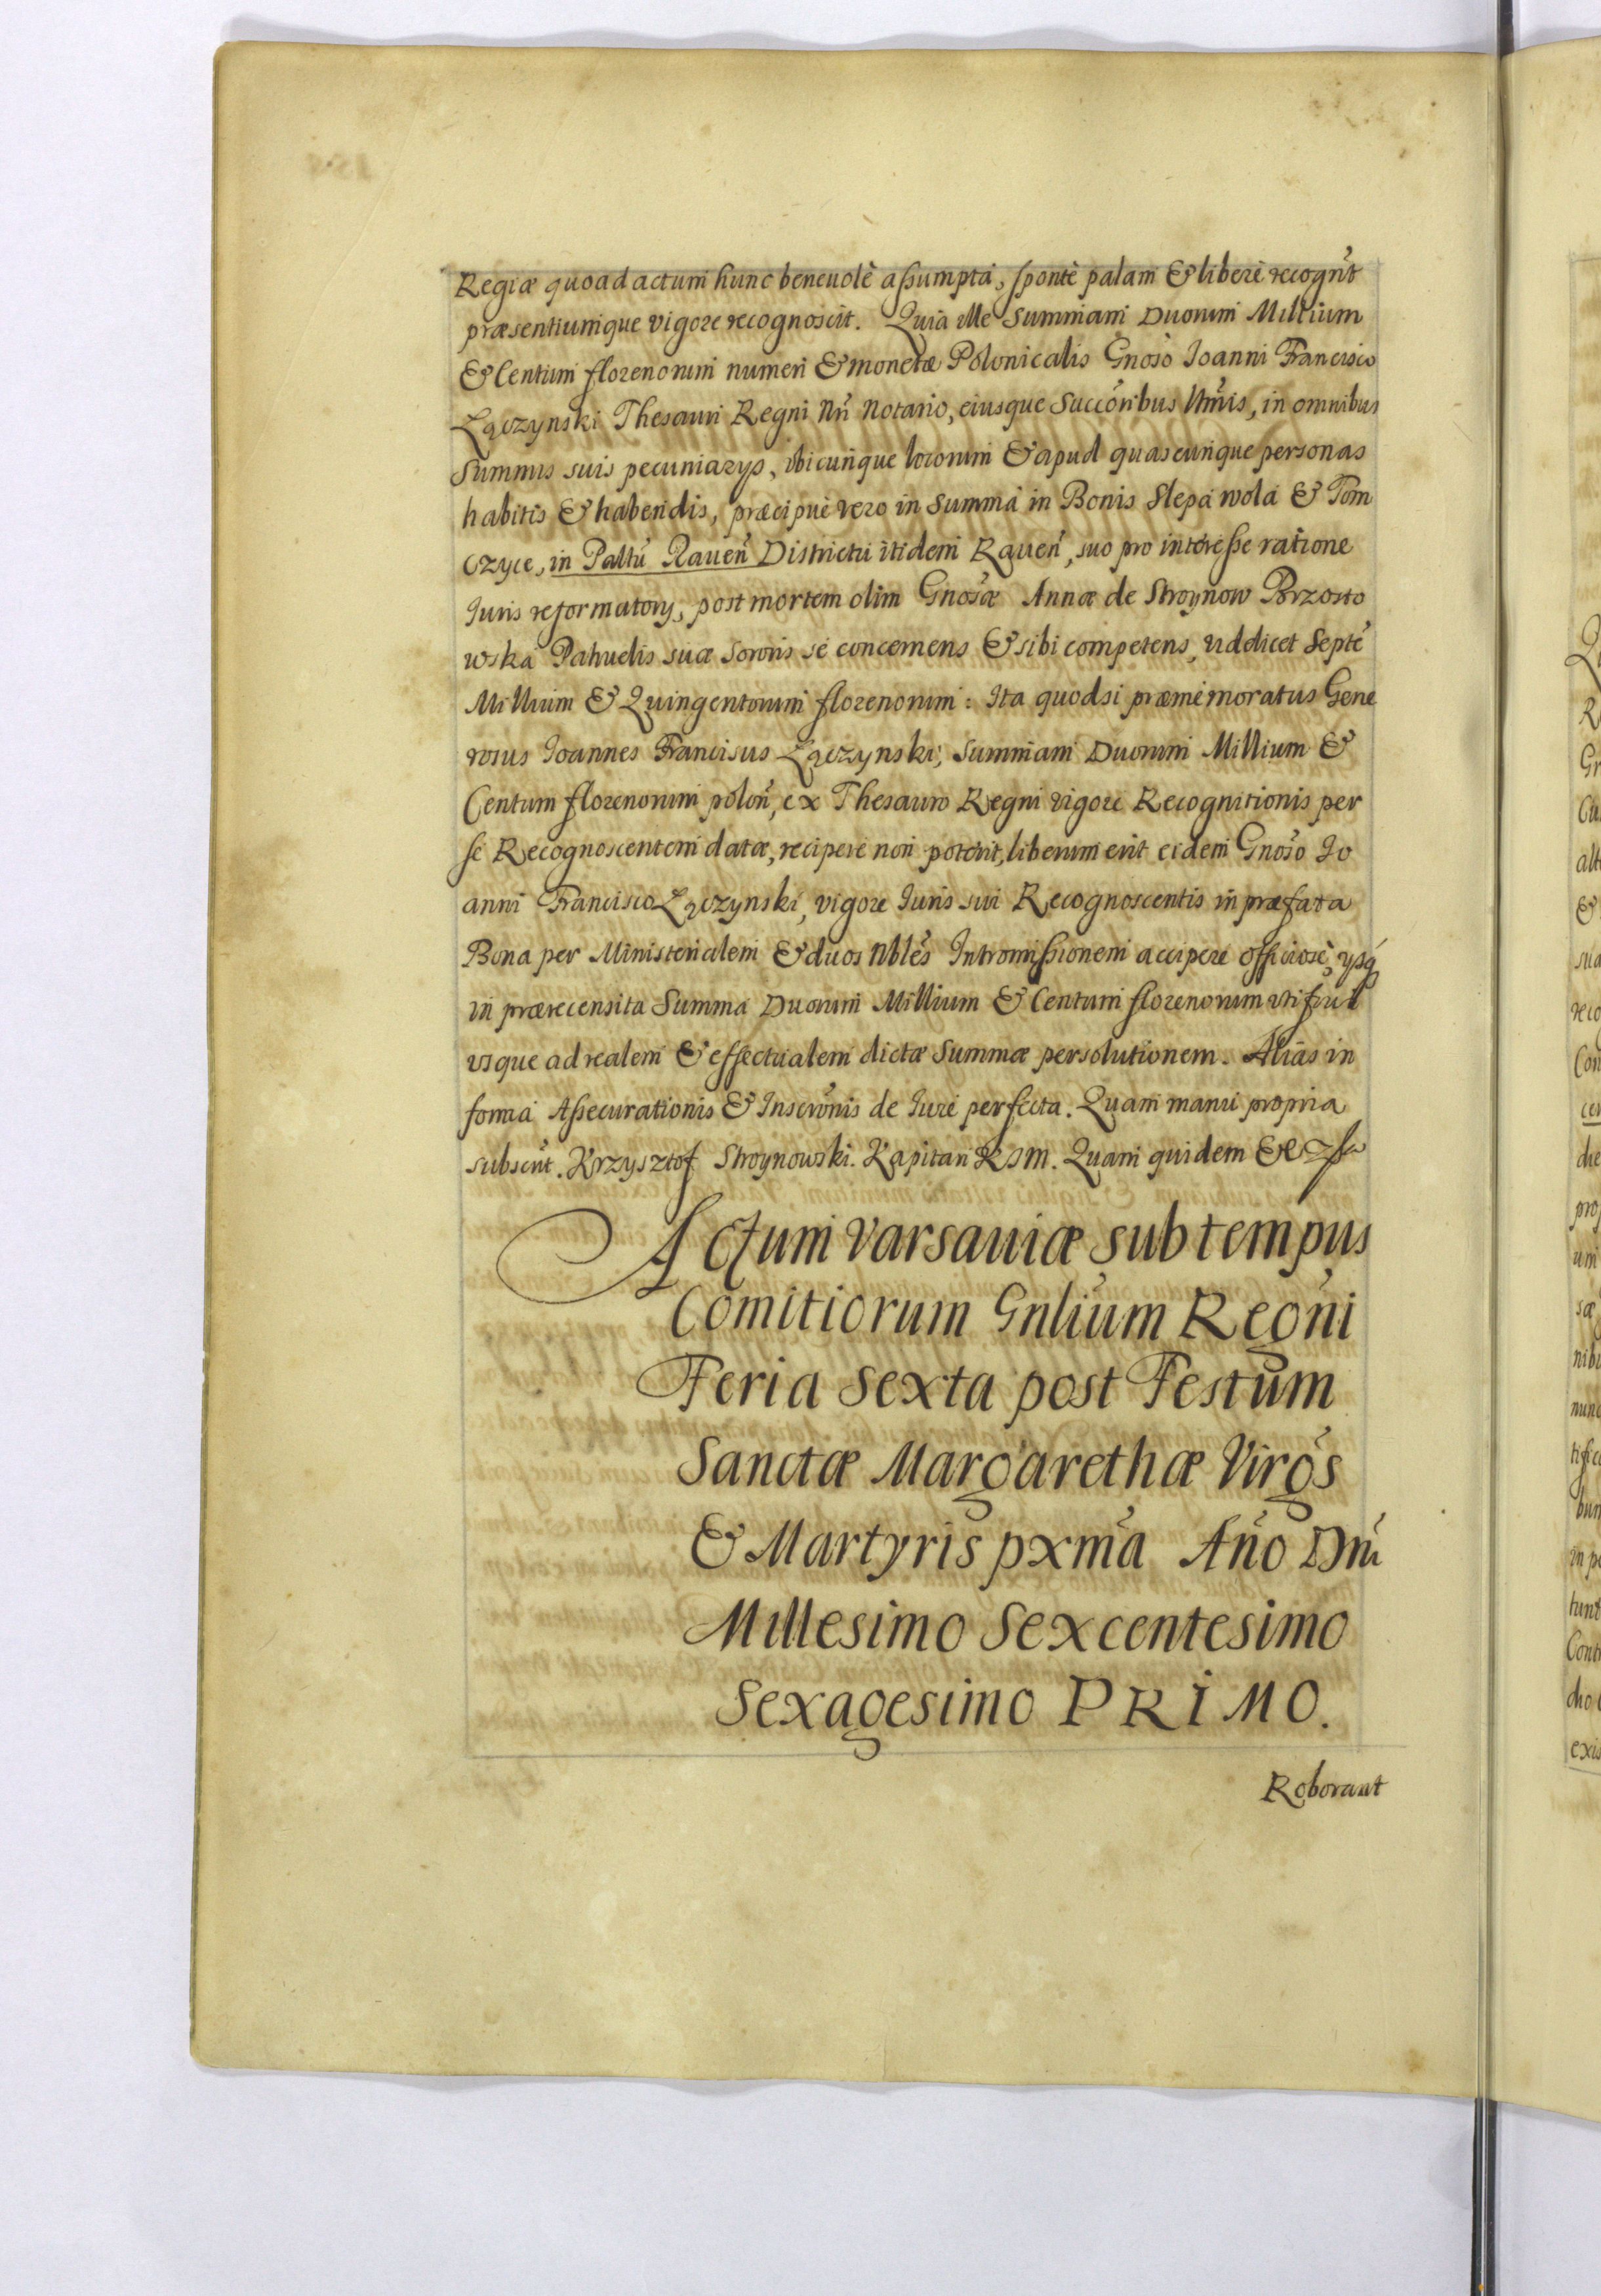 Regiæ quoad actum hunc beneuolè assumpta, spontè palam & liberè recogn̄t
præsentiumque vigore recognoscit. Quia ille Summam Duorum Millium
& Centum florenorum numeri & monetæ Polonicalis Gnoso Joanni Francisco
Łączynski Thesauri Regni Nr̄i Notario, eiusque Succoribus Umis, in omnibus
Summis suis pecuniarys, vbicunque locorum & apud quascunque personas
habitis & habendis, præcipuè vero in Summa in Bonis Slepa wola & Tom
czyce, in Paltu Rauen Districtu itidem Rauen, suo pro interesse ratione
Juris reformatory, post mortem olim Gnosæ Annæ de Stroynow Brzosto
wska Patruelis suæ Sororis se concernens & sibi competens, videlicet Septē
Millium & Quingentorum florenorum: Ita quodsi præmemoratus Gene
rosus Joannes Franciscus Łączynski, Summam Duorum Millium &
Centum florenorum polon, ex Thesauro Regni vigore Recognitionis per
se Recognoscentem datæ, recipere non poterit, liberum erit eidem Gnoso Jo
anni Francisco Łączynski, vigore Juris sui Recognoscentis in præfata
Bona per Ministerialem & duos Nbles Intromissionem accipere officiosè, ysq
in prærecensita Summa Duorum Millium & Centum florenorum vti frui
vsque ad realem & effectualem dictæ Summæ persolutionem. Alias in
forma Assecurationis & Inscronis de Jure perfecta. Quam manu propria
subscrit. Krzysztof Stroynowski. Kapitan KJM. Quam quidem &c
Actum Varsauiæ sub tempus
Comitiorum Gnlium Regni
Feria Sexta post Festum
Sanctæ Margarethæ Virgs
& Martyris pxma Año Dni
Millesimo Sexcentesimo
Sexagesimo PRIMO.
Roborant